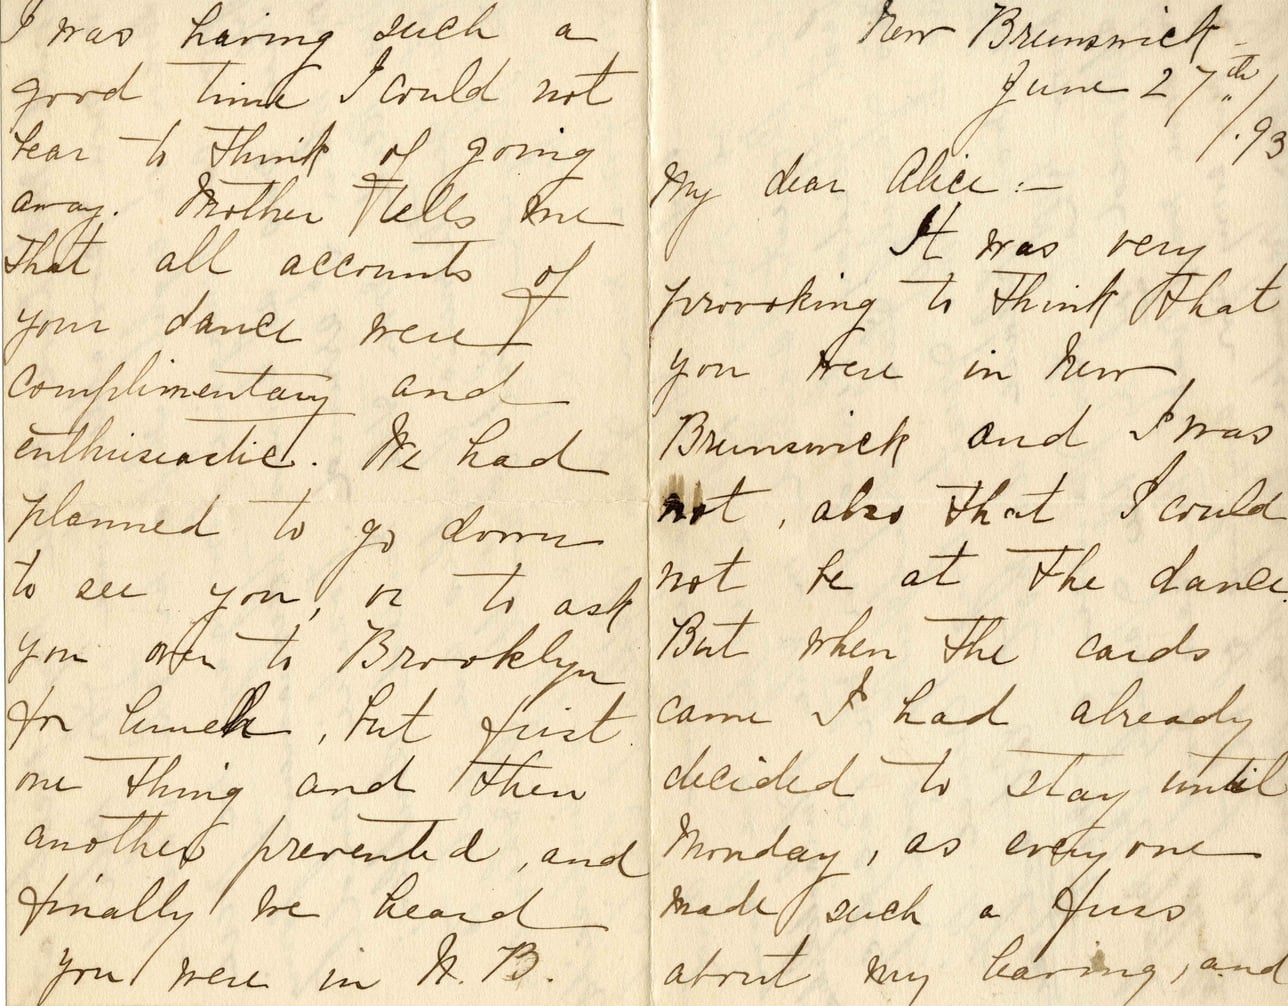 New Brunswick -
June 27th/.93
My dear Alice :-
It was very
provoking to think that
you were in New
Brunswick and I was
not, also that I could
not be at the dance.
But when the cards
came I had already
decided to stay until
Monday, as everyone
made such a fuss
about my leaving, and
I was having such a
good time I could not
bear to think of going
away. Mother tells me
that all accounts of
your dance were
complimentary and
enthusiastic. We had
planned to go down
to see you, or to ask
you over to Brooklyn
for lunch, but first
one thing and then
another prevented, and
finally we heard
you were in N. B.